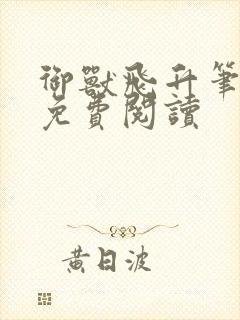 御獸飛升筆
免費閱讀
黃日波